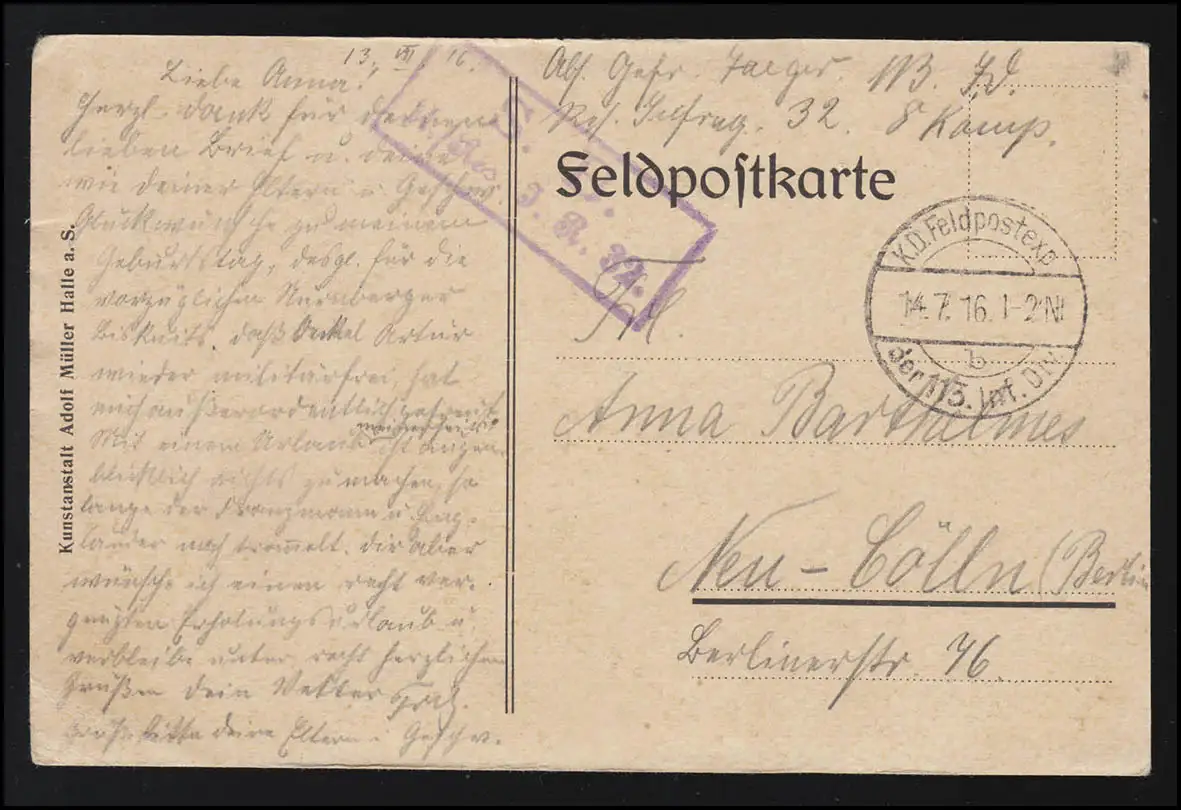 13. VII. 16.
Liebe Anna!
Herzl. Dank für deinen
lieben Brief u. deine
wie deiner Eltern u. Geschw.
Glückwünsche zu meinem
Geburtstag, desgl. für die
vorzüglichen Nürnberger
Biskuits. daß Onkel Artur
wieder militärfrei, hat
mich außerordentlich gefreut.
Mit einem Urlaub ist augen-
blicklich nichts zu machen, so
lange der Franzmann u. Eng-
länder noch trommelt. Dir aber
wünsche ich einen recht ver-
gnügten Erholungsurlaub u.
verbleibe unter recht herzlichen
Grüßen dein Vetter
Grüße bitte deine Eltern u. Geschw.
Kunstanstalt Adolf Müller Halle a. S.
Abs. Gefr. Jaeger. 113. I.D.
Res. Infreg. 32. 8 Komp.
Feldpostkarte
S. B.
J. R. 32.
K.D. Feldpostexp.
14.7.16. 1-2 N
b
der 113. Inf. Div.
Frl.
Anna Barthelmes
Neu-Cölln (Berlin
Berlinerstr. 76